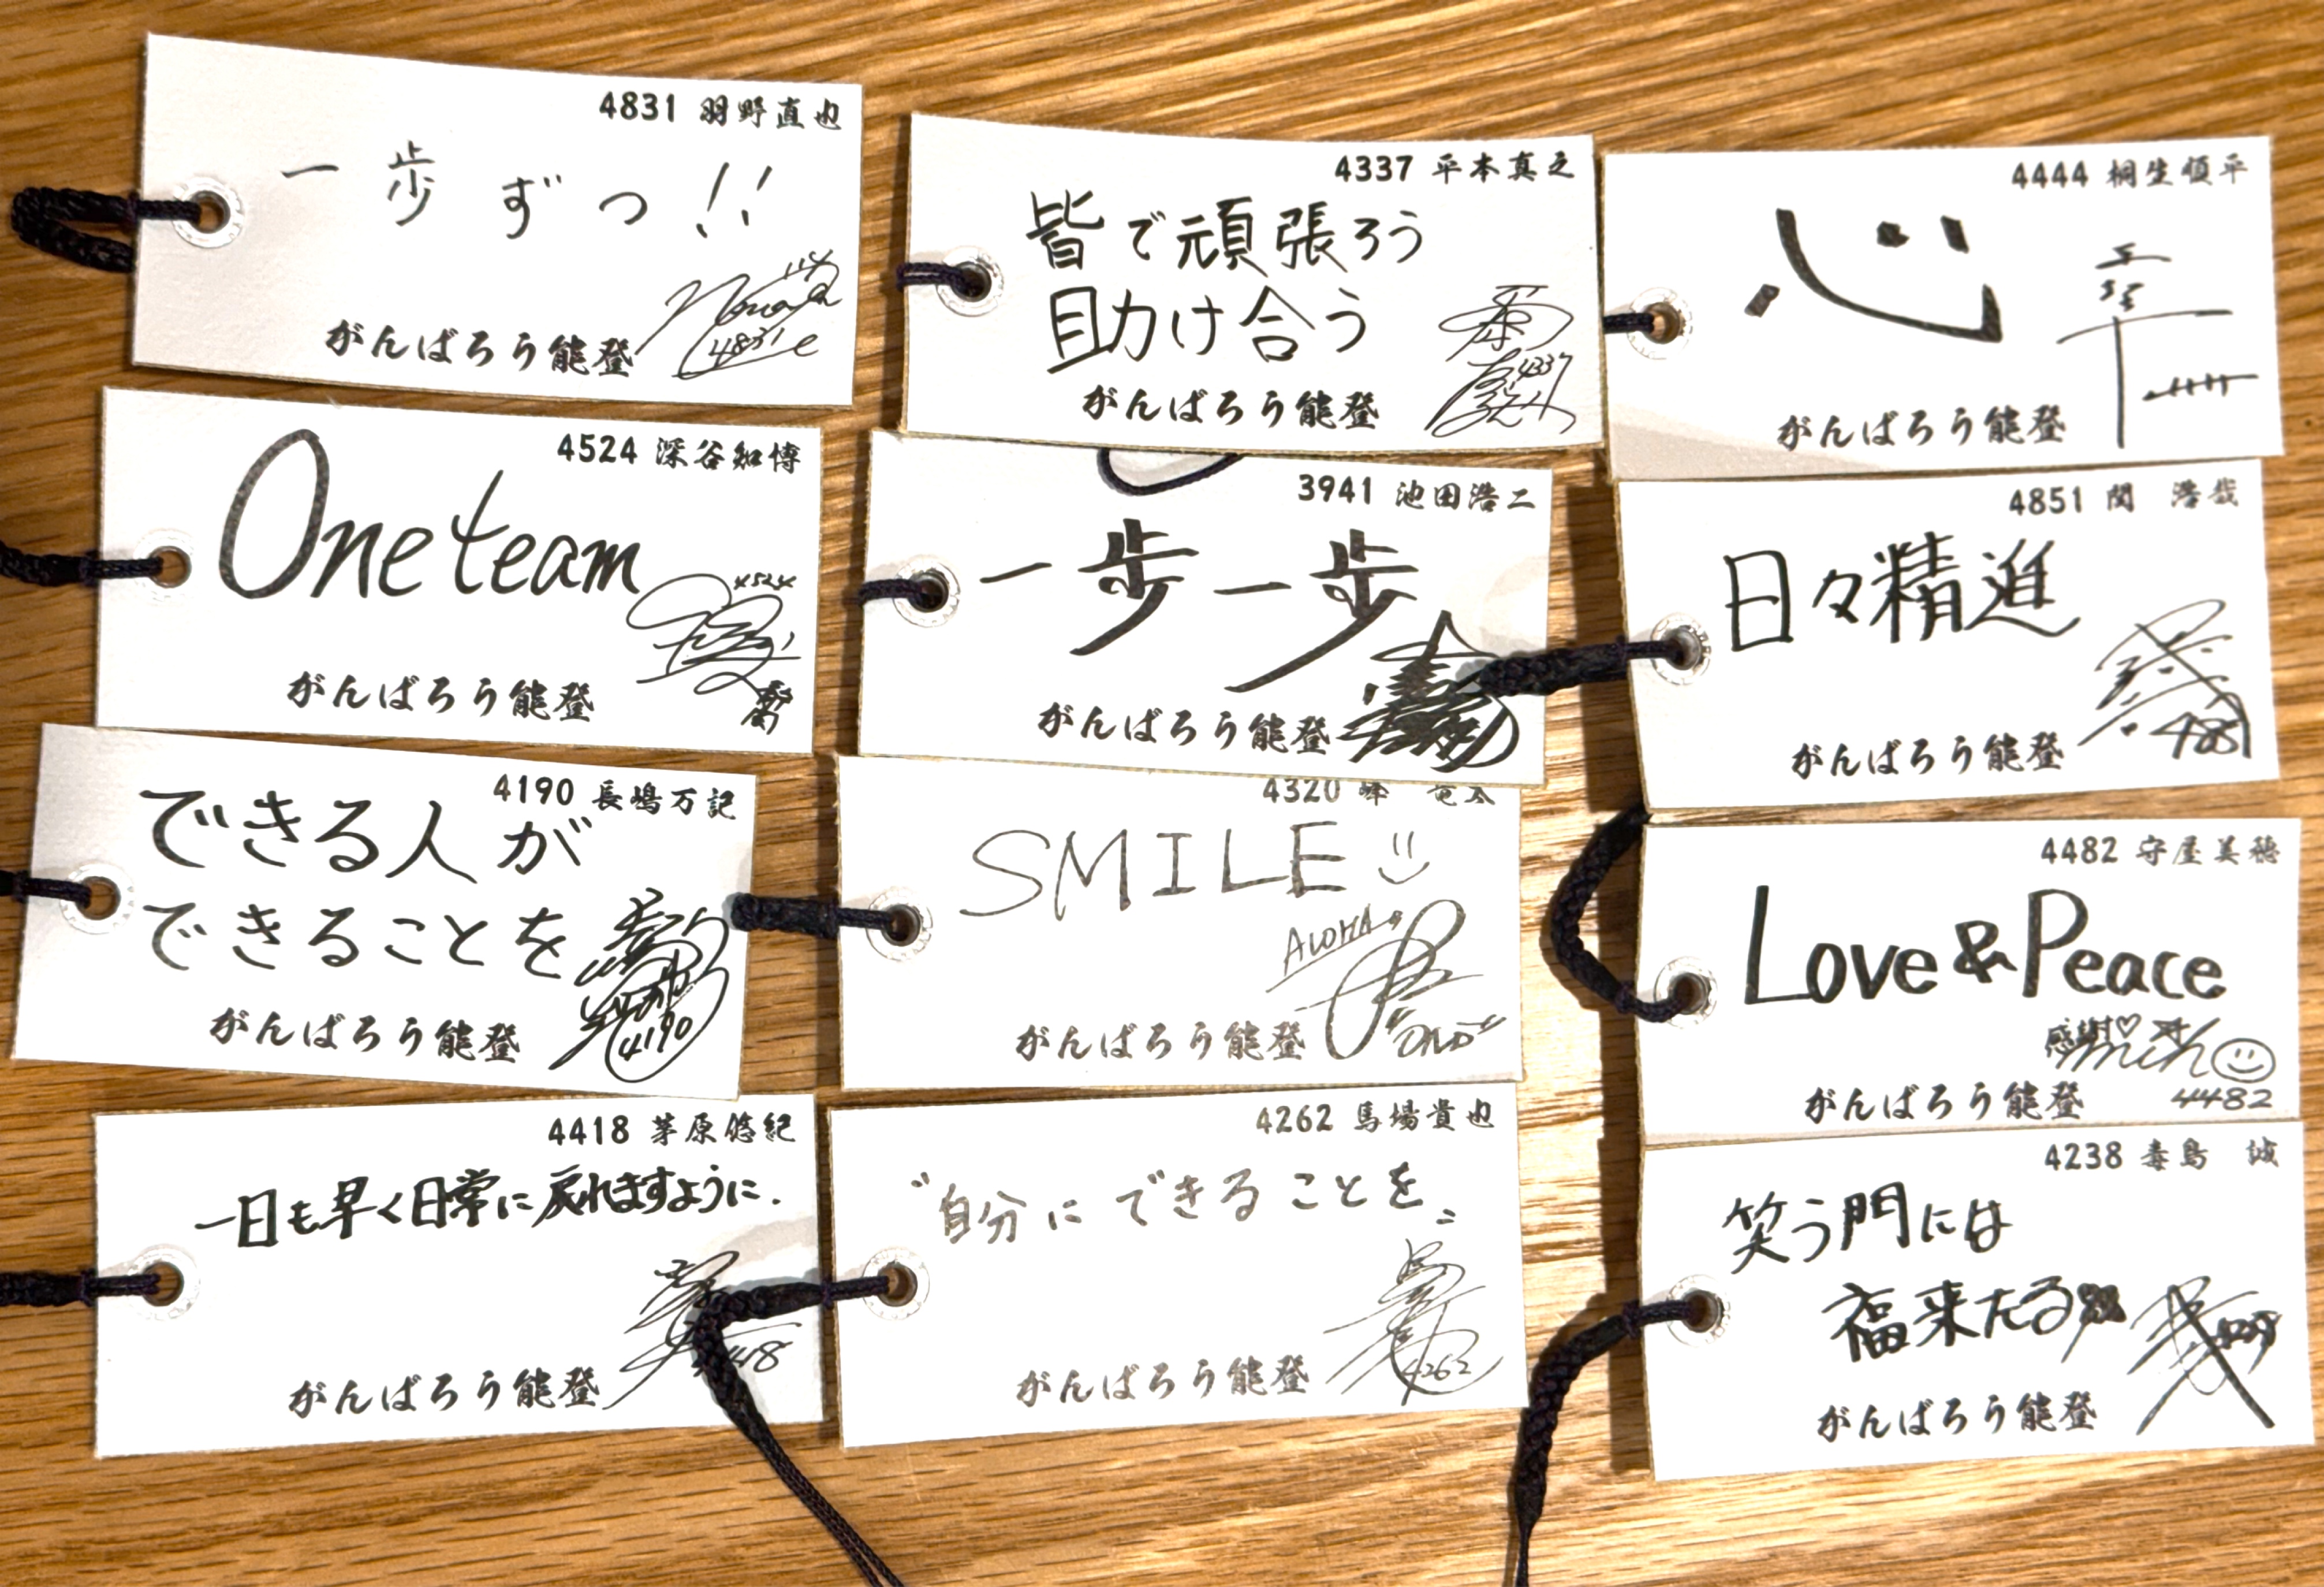 4831 羽野直也
一歩ずつ!!
4831
がんばろう能登
4524 深谷知博
One team
4524
がんばろう能登
4190 長嶋万記
できる人が
できることを
4190
がんばろう能登
4418 茅原悠紀
一日も早く日常に戻れますように.
がんばろう能登
4337 平本真之
皆で頑張ろう
助け合う
4337
がんばろう能登
3941 池田浩二
一歩一歩
がんばろう能登
4320 峰 竜太
SMILE
ALOHA
がんばろう能登
4262 馬場貴也
"自分にできることを"
4262
がんばろう能登
4444 桐生順平
心
がんばろう能登
4851 関 浩哉
日々精進
4851
がんばろう能登
4482 守屋美穂
Love&Peace
感謝♡
4482
がんばろう能登
4238 毒島 誠
笑う門には
福来たる
がんばろう能登